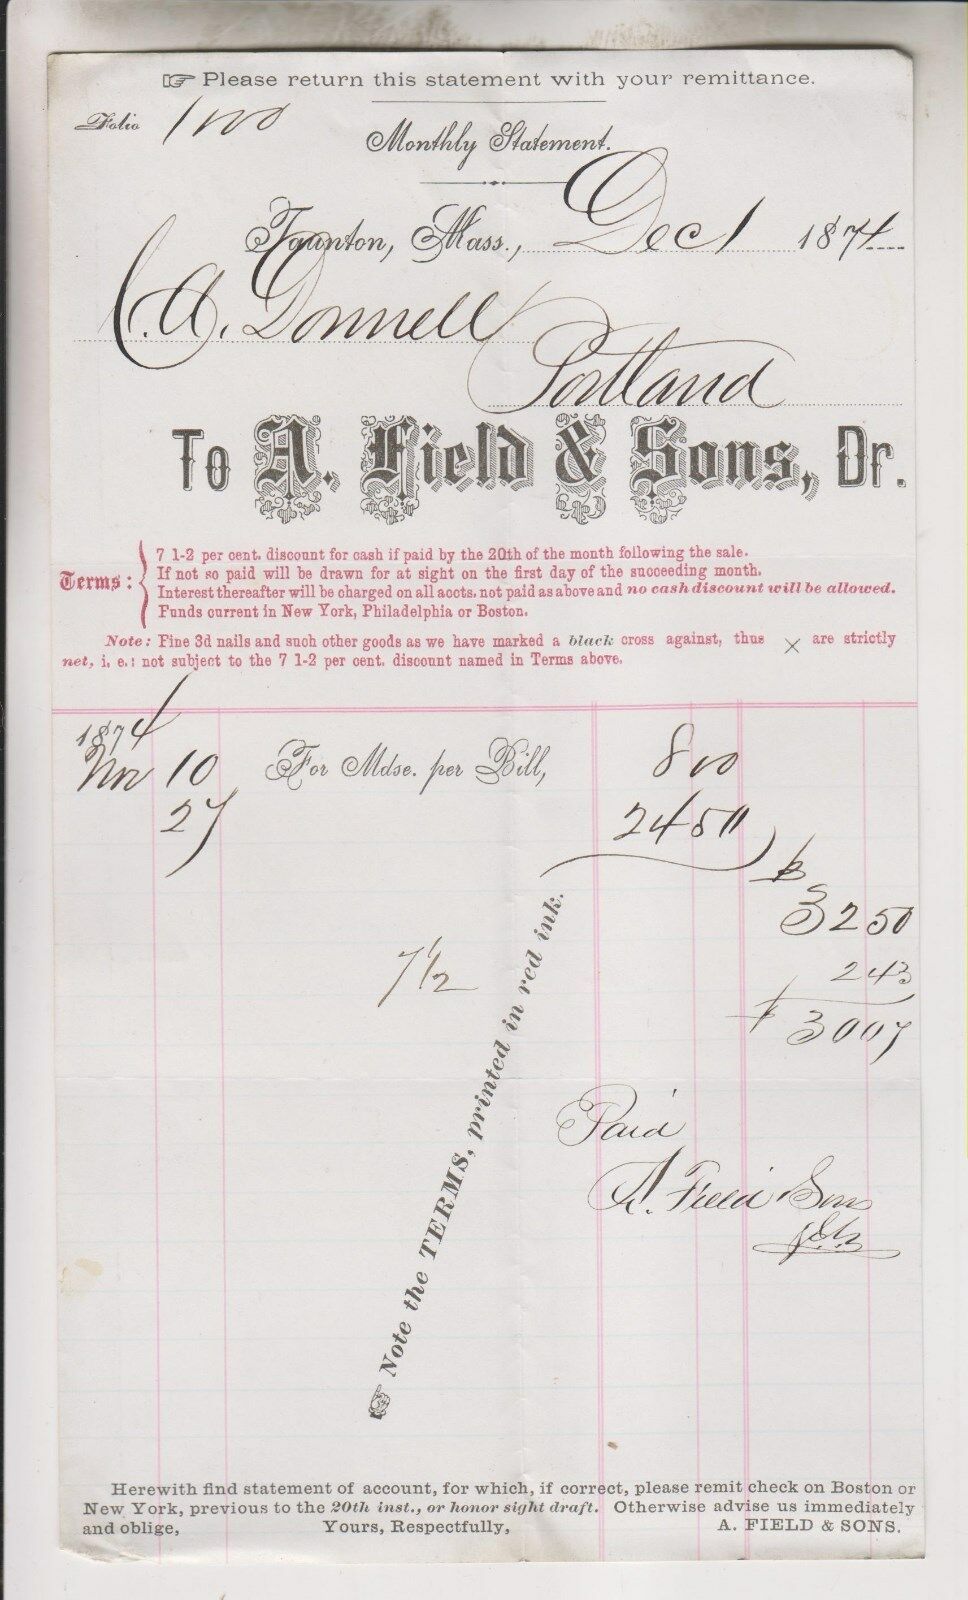 ☞ Please return this statement with your remittance.
Folio 100
Monthly Statement.
Taunton, Mass., Dec 1 1874
C. A. Donnell
Portland
To A. Field & Sons, Dr.
Terms: { 7 1-2 per cent. discount for cash if paid by the 20th of the month following the sale.
If not so paid will be drawn for at sight on the first day of the succeeding month.
Interest thereafter will be charged on all accts. not paid as above and no cash discount will be allowed.
Funds current in New York, Philadelphia or Boston.
Note: Fine 3d nails and such other goods as we have marked a black cross against, thus × are strictly
net, i. e.: not subject to the 7 1-2 per cent. discount named in Terms above.
1874
Nov 10 For Mdse. per Bill, 8 00
27 24 50
$
32 50
7 1/2 2 43
$ 30 07
Paid
A. Field & Sons
☞ Note the TERMS, printed in red ink.
Herewith find statement of account, for which, if correct, please remit check on Boston or
New York, previous to the 20th inst., or honor sight draft. Otherwise advise us immediately
and oblige, Yours, Respectfully, A. FIELD & SONS.